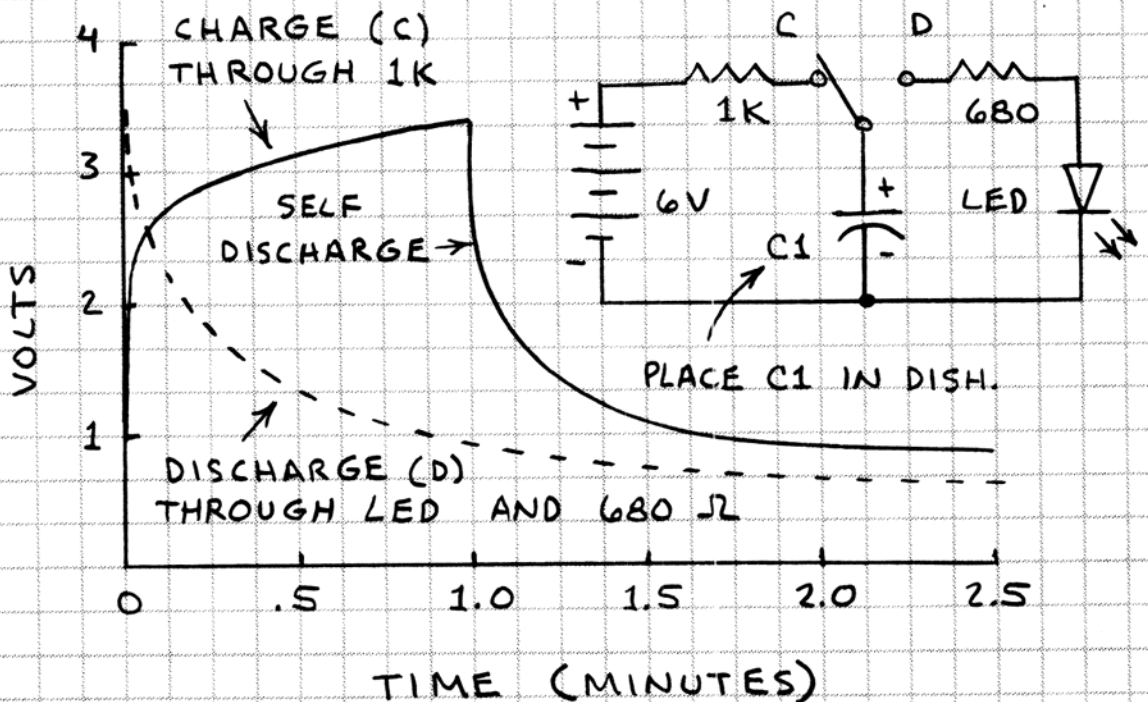 CHARGE (C)
THROUGH 1K
SELF
DISCHARGE
DISCHARGE (D)
THROUGH LED AND 680 Ω
VOLTS
4
3
2
1
0 .5 1.0 1.5 2.0 2.5
TIME (MINUTES)
C D
1K 680
+
6V
-
+
C1
-
LED
PLACE C1 IN DISH.